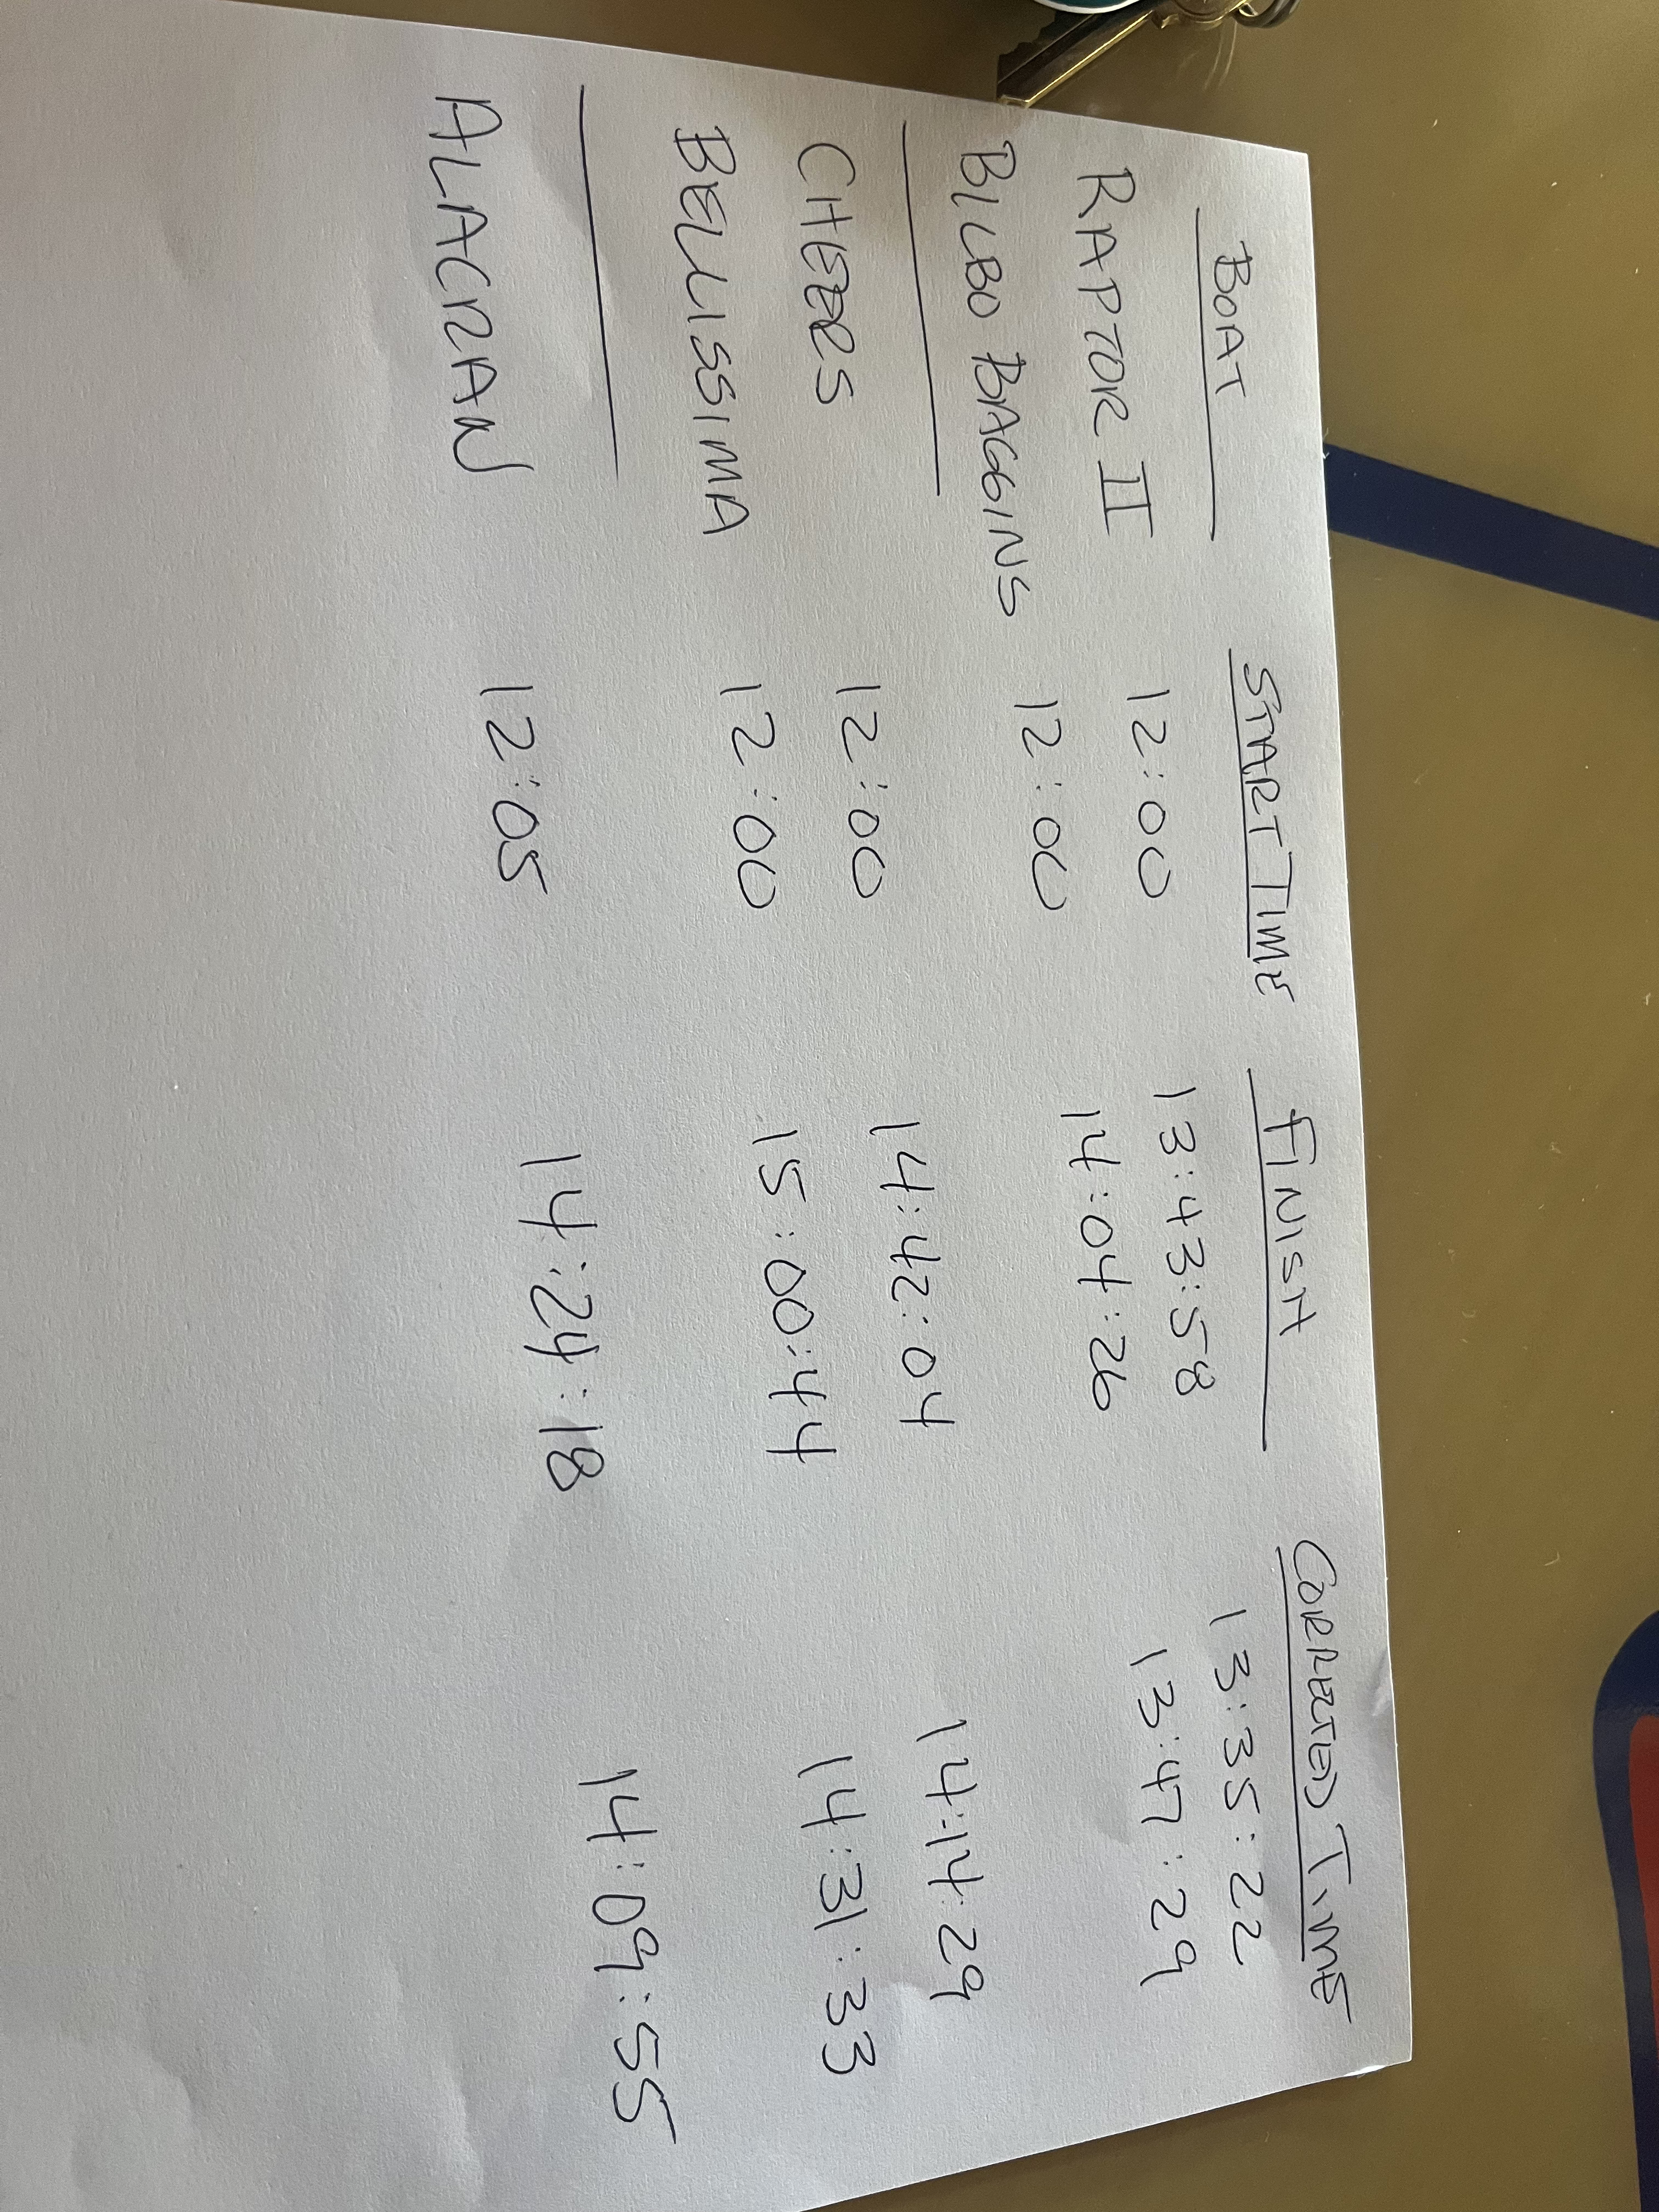 BOAT START TIME FINISH CORRECTED TIME
RAPTOR II 12:00 13:43:58 13:35:22
BILBO BAGGINS 12:00 14:04:26 13:47:29
CHEERS 12:00 14:42:04 14:14:29
BELLISSIMA 12:00 15:00:44 14:31:33
ALACRAN 12:05 14:24:18 14:09:55